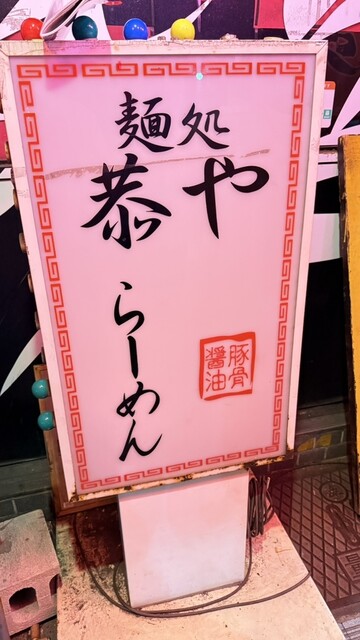 麺処
恭や
らーめん
豚骨
醤油